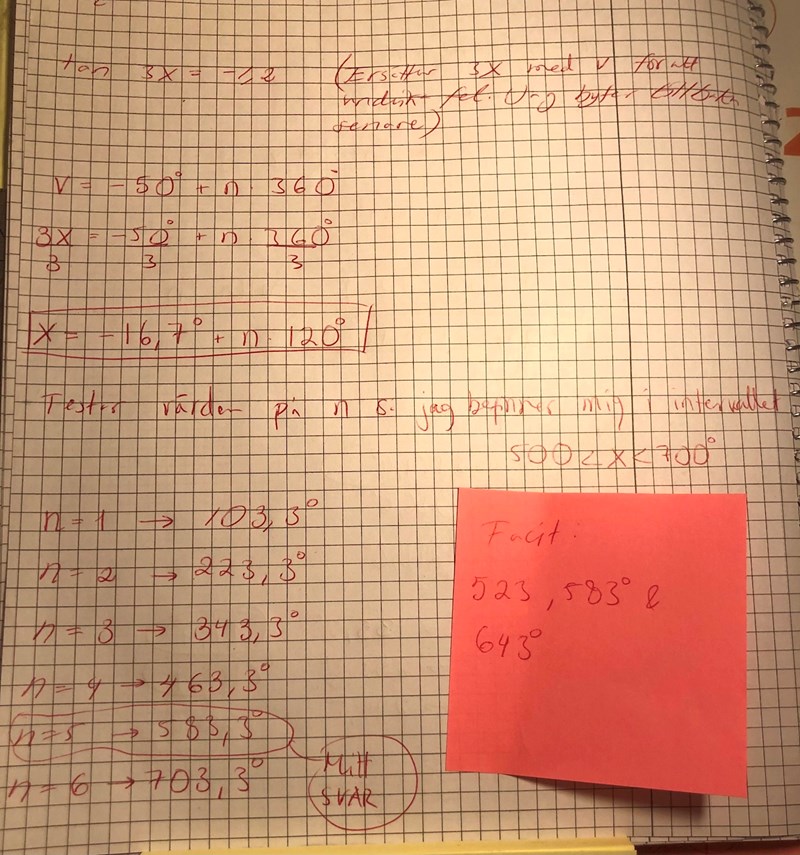 tan 3x = -1,2 (Ersätter 3x med v för att
undvika fel. Och byter tillbaka
senare)
v = -50° + n · 360°
3x = -50° + n · 360°
3 3 3
x = -16,7° + n · 120°
Testar värden på n så jag befinner mig i intervallet
500 < x < 700°
n = 1 → 103,3°
n = 2 → 223,3°
n = 3 → 343,3°
n = 4 → 463,3°
n = 5 → 583,3°
n = 6 → 703,3°
Mitt
SVAR
Facit:
523, 583° &
643°